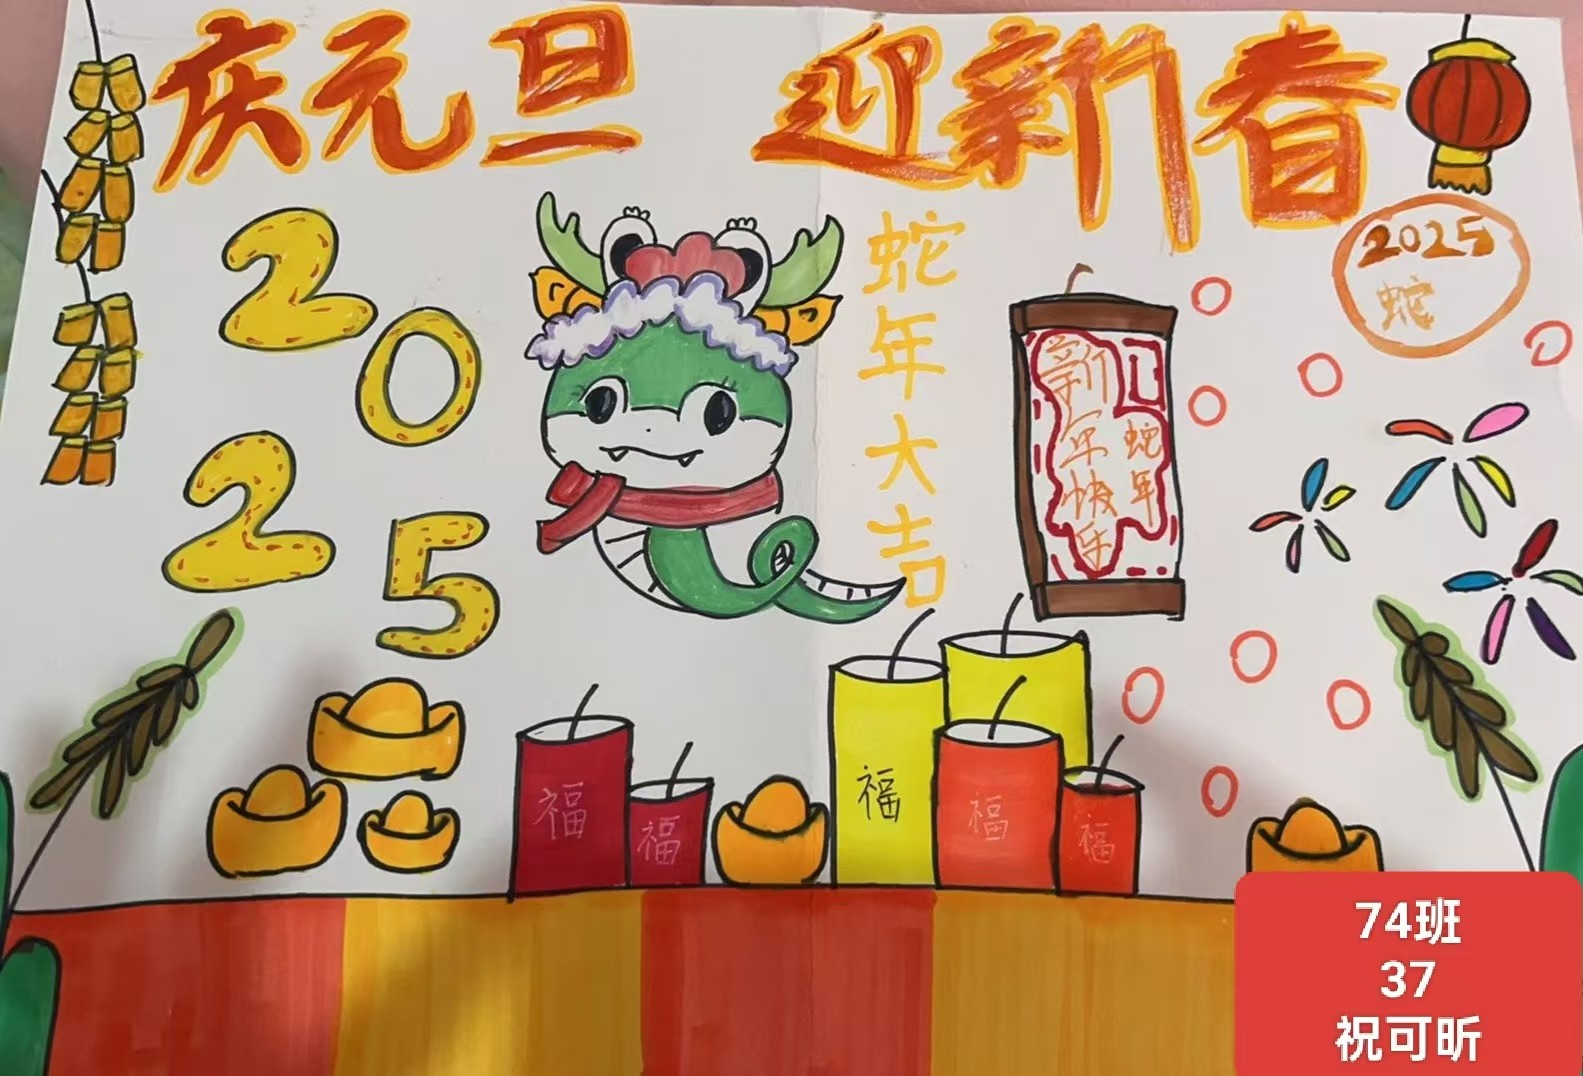 庆元旦 迎新春
2025
蛇
蛇年大吉
新年快乐
蛇年
2025
福
福
福
福
福
74班
37
祝可昕